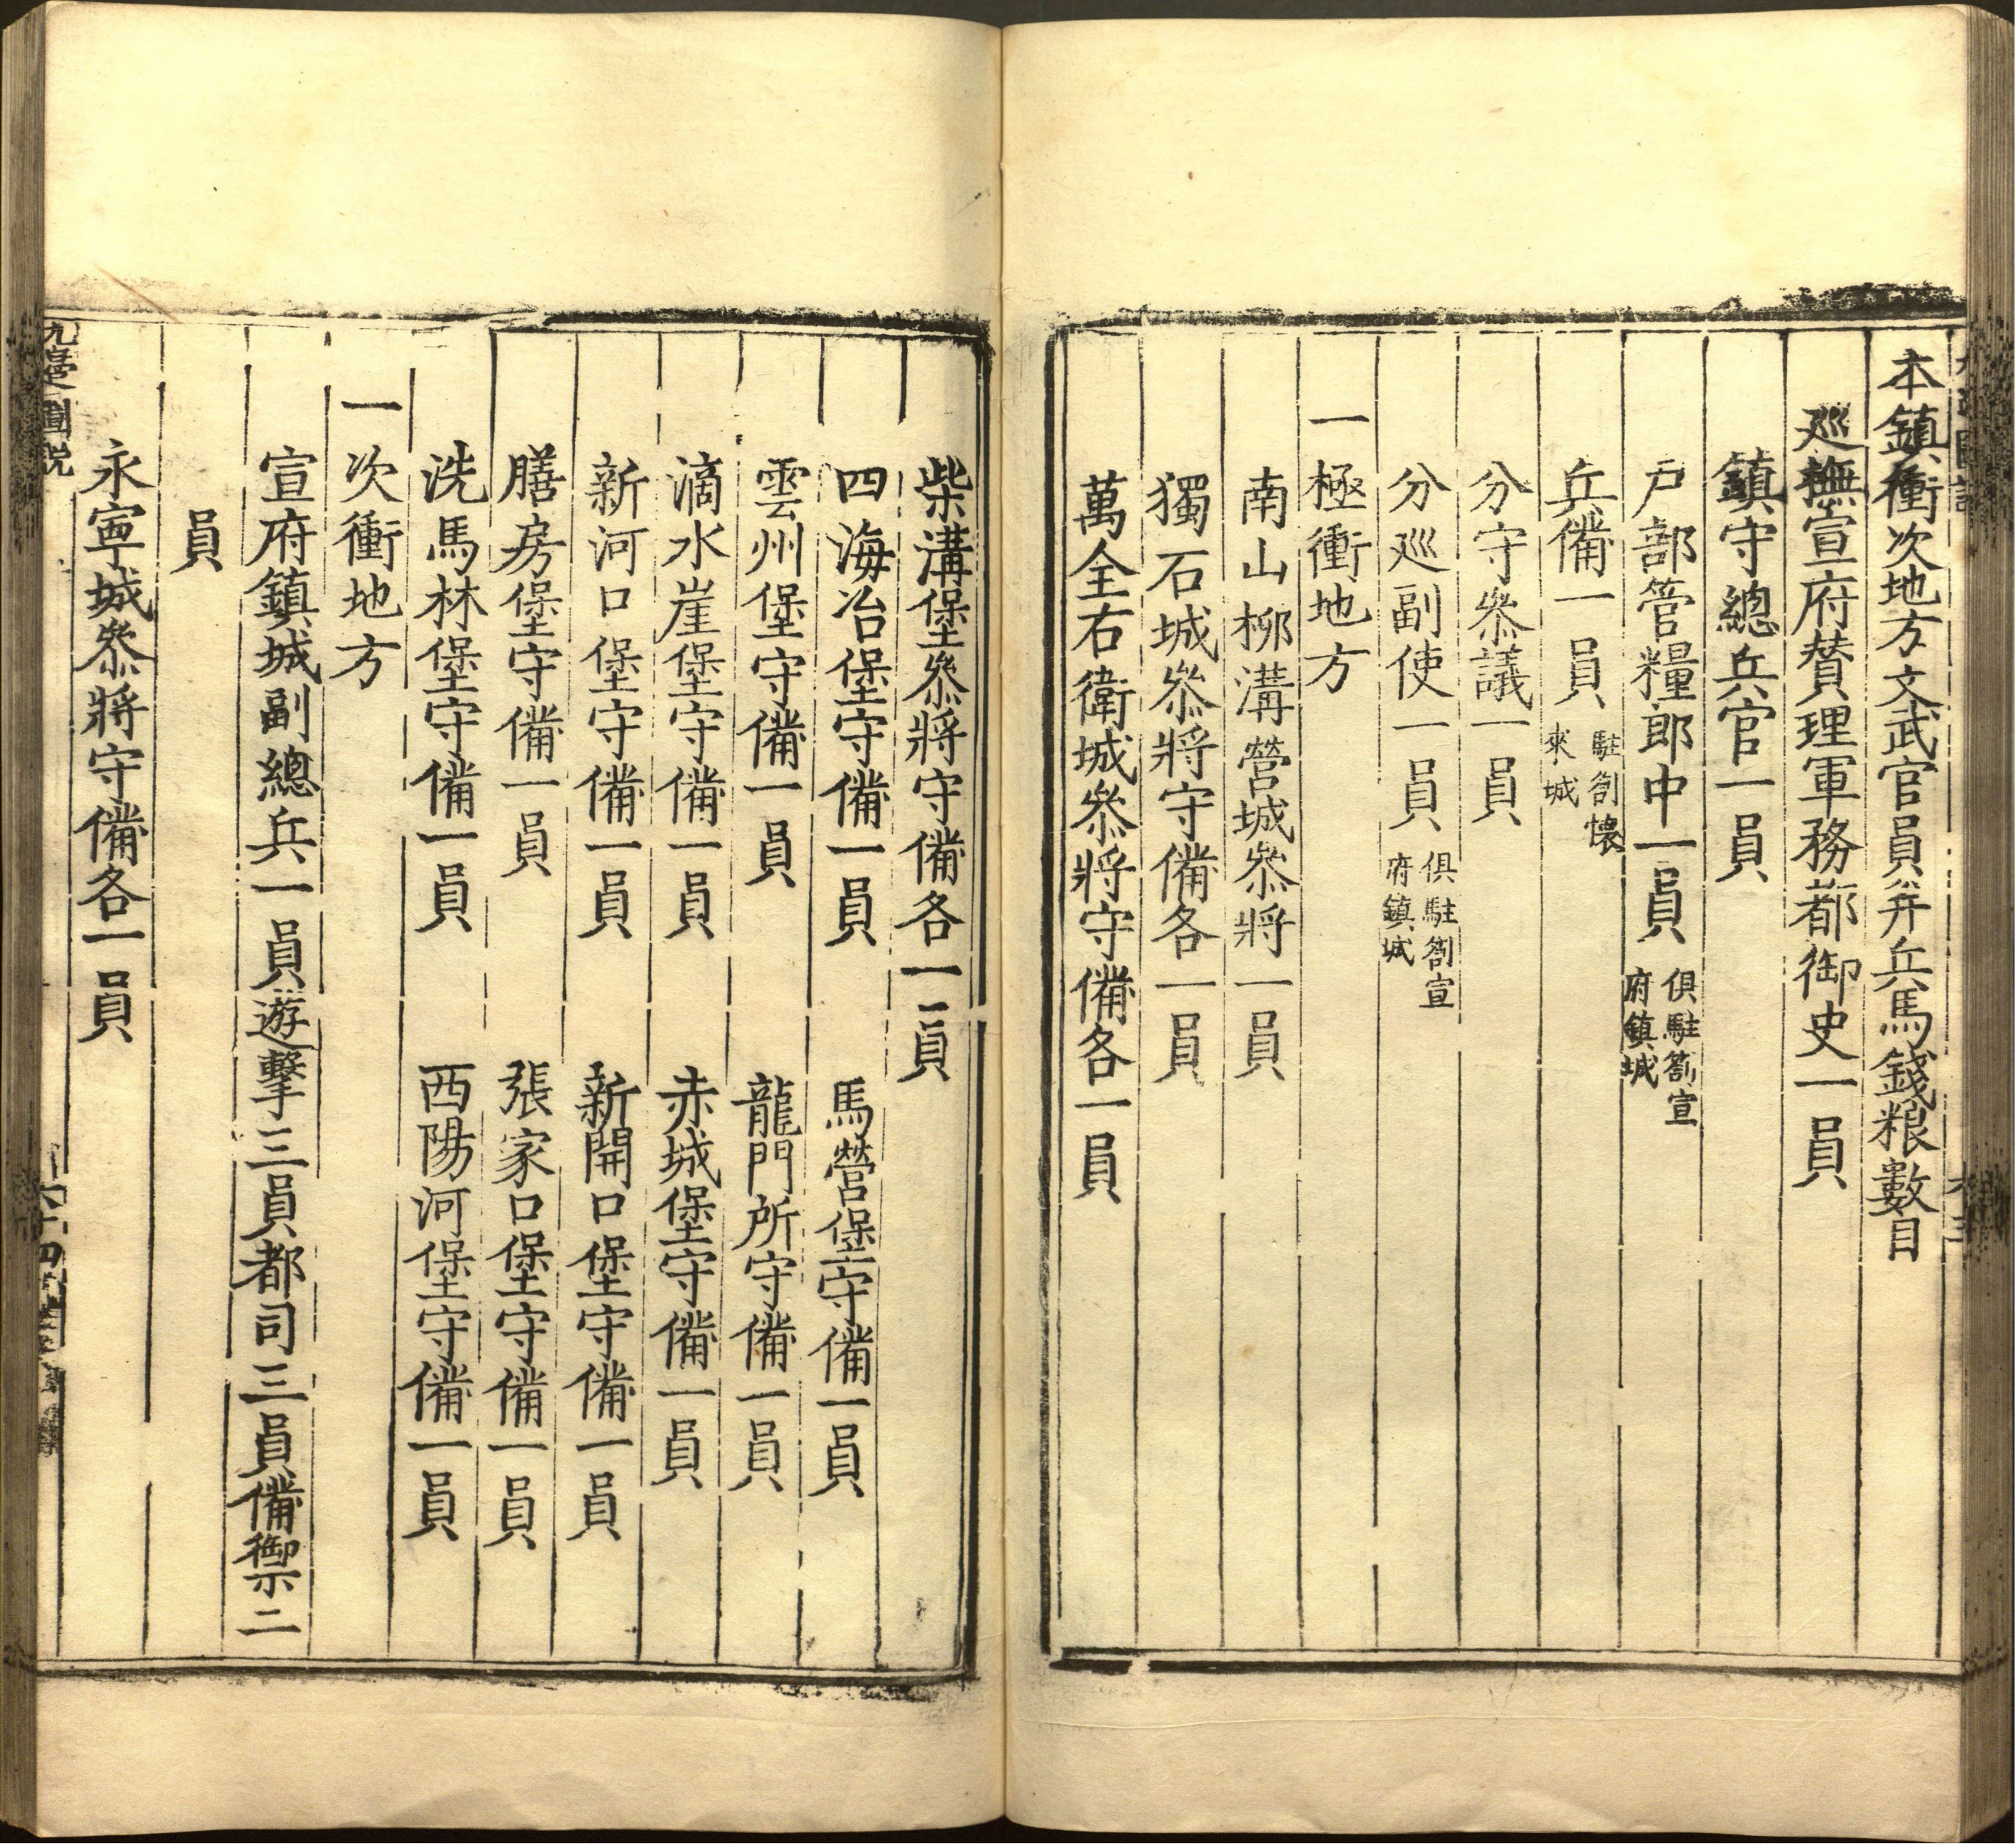 本鎮衝次地方文武官員并兵馬錢粮數目
巡撫宣府賛理軍務都御史一員
鎮守總兵官一員
户部管糧郎中一員 俱駐劄宣府鎮城
兵備一員 駐劄懷來城
分守叅議一員
分巡副使一員 俱駐劄宣府鎮城
一極衝地方
南山柳溝營城叅將一員
獨石城叅將守備各一員
萬全右衛城叅將守備各一員
柴溝堡叅將守備各一員
四海冶堡守備一員 馬營堡守備一員
雲州堡守備一員 龍門所守備一員
滴水崖堡守備一員 赤城堡守備一員
新河口堡守備一員 新開口堡守備一員
膳房堡守備一員 張家口堡守備一員
洗馬林堡守備一員 西陽河堡守備一員
一次衝地方
宣府鎮城副總兵一員遊擊三員都司三員備禦二
員
永寧城叅將守備各一員
九邊圖說